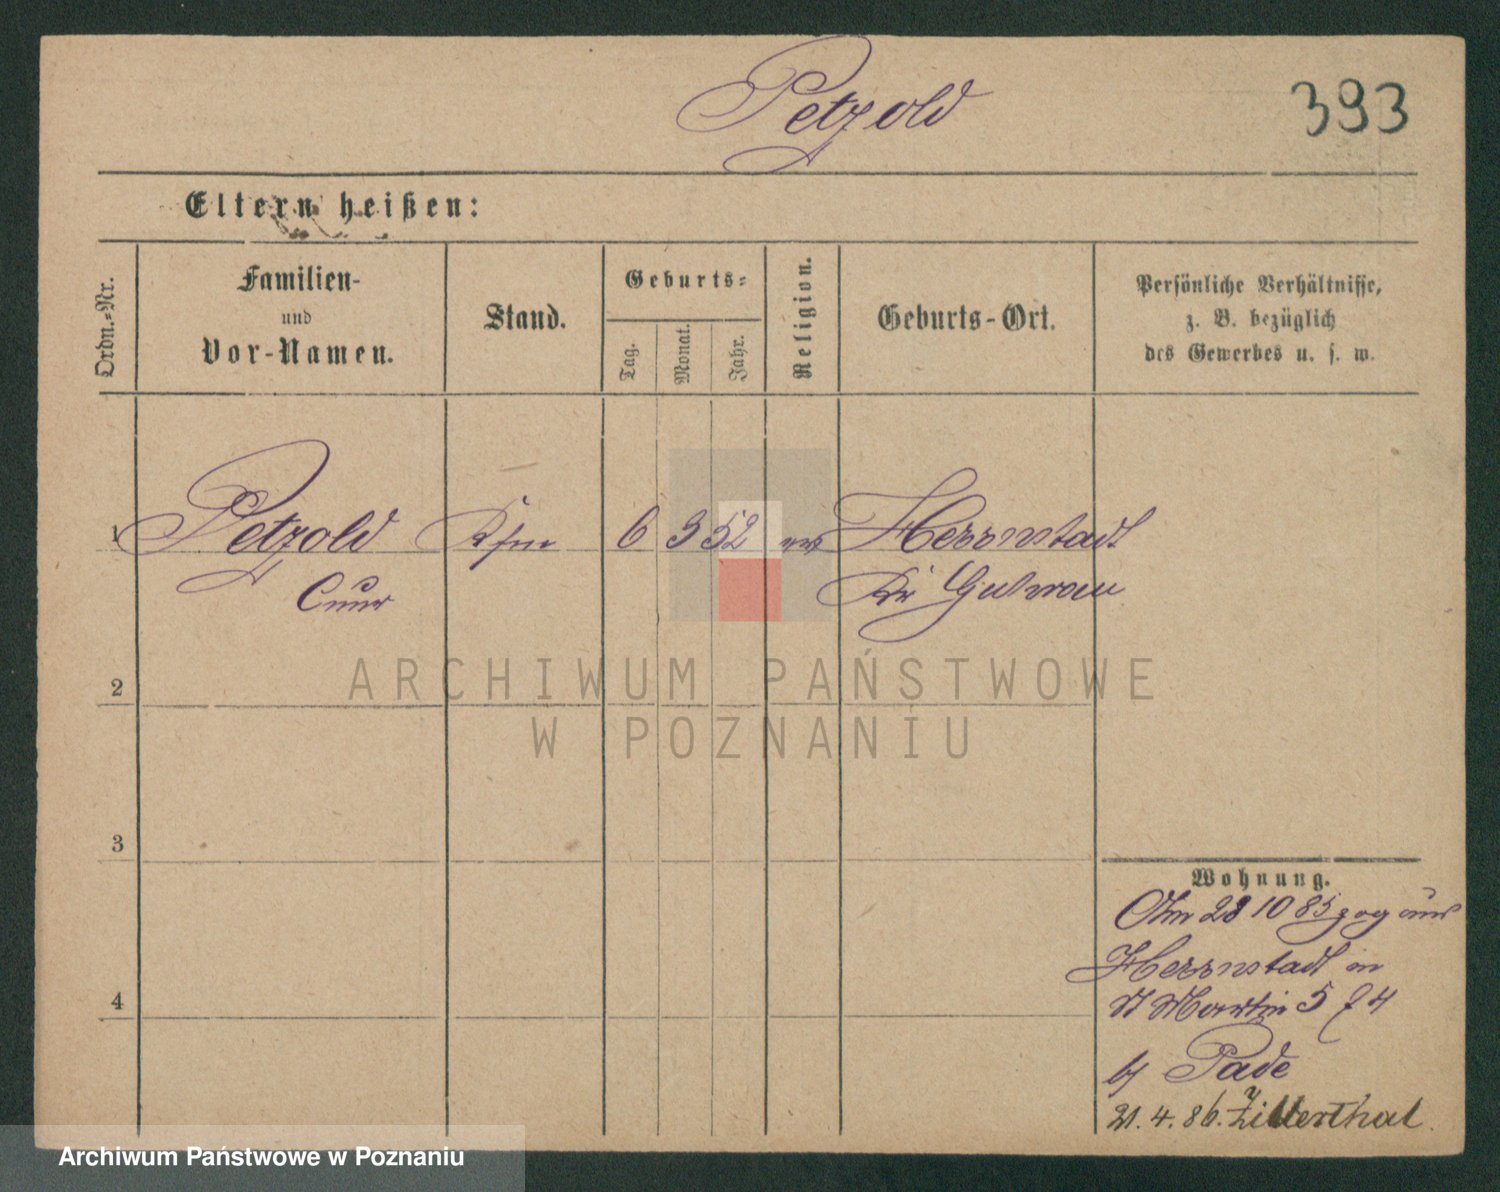 Petzold
393
Eltern heißen:
Ordn.-Nr.
Familien-
und
Vor-Namen.
Stand.
Geburts-
Tag.
Monat.
Jahr.
Religion.
Geburts-Ort.
Persönliche Verhältnisse,
z. B. bezüglich
des Gewerbes u. s. w.
1 Petzold Kfm 6 3 52 ev Herrnstadt
Curt Kr Guhrau
2
3
4
ARCHIWUM PAŃSTWOWE
W POZNANIU
Wohnung.
Am 28 10 85 zog aus
Herrnstadt in
St Martin 5 74
by Pade
21. 4. 86. Zillerthal.
Archiwum Państwowe w Poznaniu